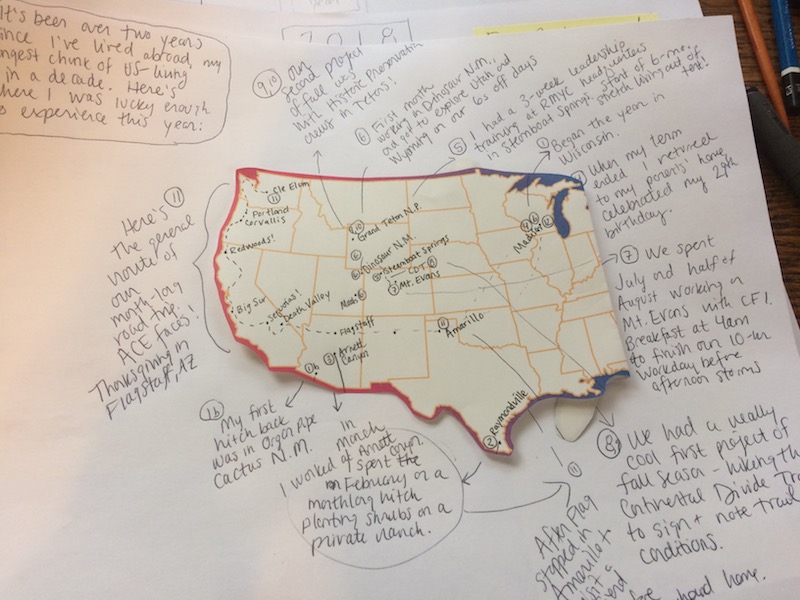 It's been over two years
since I've lived abroad, my
longest chunk of US-living
in a decade. Here's
where I was lucky enough
to experience this year:
2018
9,10 our
second project
of fall was
with Historic Preservation
crews in Tetons!
6 First month
working in Dinosaur N.M.
and got to explore Utah and
Wyoming on our 6os off days
5 I had a 3-week leadership
training at RMYC headquarters
in Steamboat Springs, a front of 6-mo.
stretch living out of
tent!
1 Began the year in
Wisconsin.
4 When my term
ended I returned
to my parent's home,
celebrated my 29th
birthday.
7 We spent
July and half of
August working on
Mt. Evans with CFI.
Breakfast at 4am
to finish our 10-hr
workday before
afternoon storms
8 We had a really
cool first project of
fall season - hiking the
Continental Divide Trail
to sign + note trail
conditions.
11
After Flag
stopped in
Amarillo +
visit a
friend
hard home.
In
March
I worked @ Arnett
Canyon.
2 spent the
February on a
monthlong hitch
planting shrubs on a
private ranch.
1b
My first
hitch back
was in Organ Pipe
Cactus N.M.
Here's 11
the general
route of
our
month-long
road trip.
ACE faces!
Thanksgiving in
Flagstaff, AZ
Cle Elum
11
Portland
Corvallis
Redwoods!
Big Sur
Sequoias!
Death Valley
9,10
Grand Teton N.P.
6
Dinosaur N.M.
6
5 Steamboat Springs
CDT 8
7 Mt. Evans
Moab 6
Flagstaff
3 Arnett
Canyon
1b
11
Amarillo
Raymondville
2
4
Madison